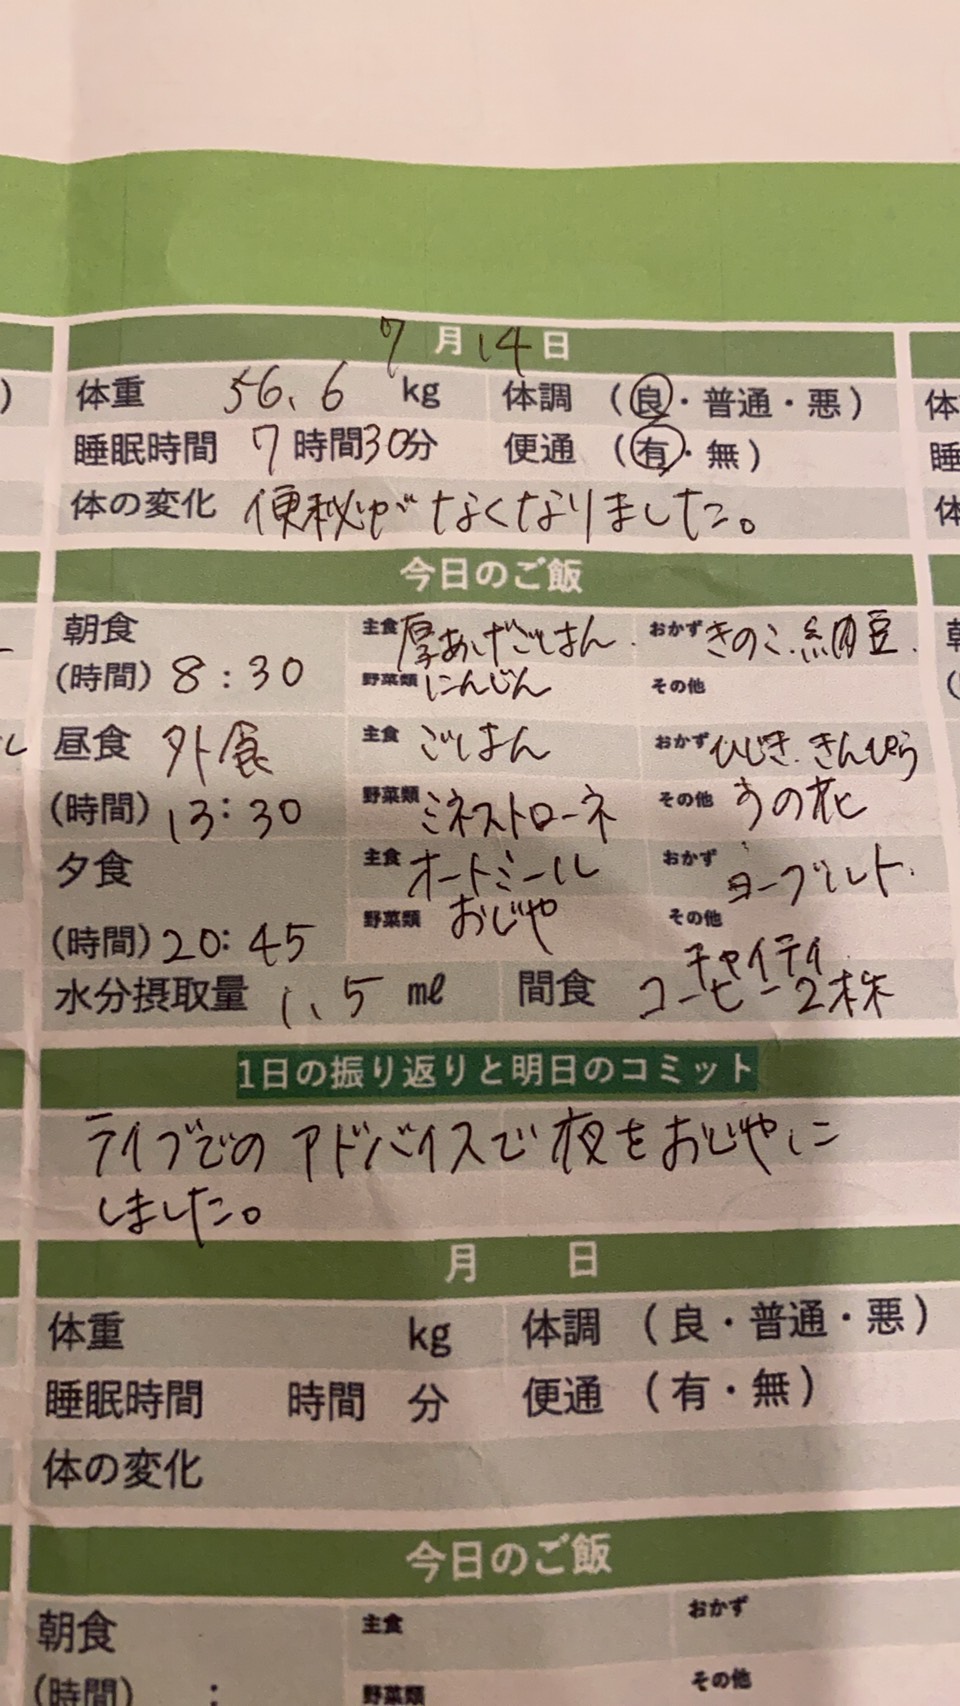 7月14日
体重 56.6 kg 体調 (良・普通・悪)
睡眠時間 7時間30分 便通 (有・無)
体の変化 便秘がなくなりました。
今日のご飯
朝食 主食 厚あげごはん. おかず きのこ.納豆.
(時間) 8:30 野菜類 にんじん その他
昼食 外食 主食 ごはん おかず ひじき.きんぴら
(時間) 13:30 野菜類 ミネストローネ その他 うの花
夕食 主食 オートミール おかず ヨーグルト.
(時間) 20:45 野菜類 おじや その他
チャイティ
水分摂取量 1.5 ml 間食 コーヒー2杯
1日の振り返りと明日のコミット
ライブでのアドバイスで夜をおじやに
しました。
月 日
体重 kg 体調 (良・普通・悪)
睡眠時間 時間 分 便通 (有・無)
体の変化
今日のご飯
朝食 主食 おかず
(時間) : 野菜類 その他